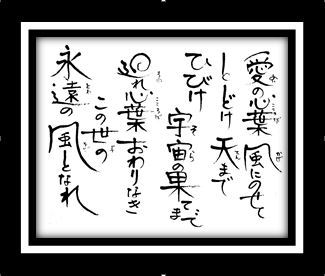 愛の心葉 風にのせて
とどけ 天まで
ひびけ 宇宙の果てまで
心葉 おわりなき
この世の
永遠の風となれ